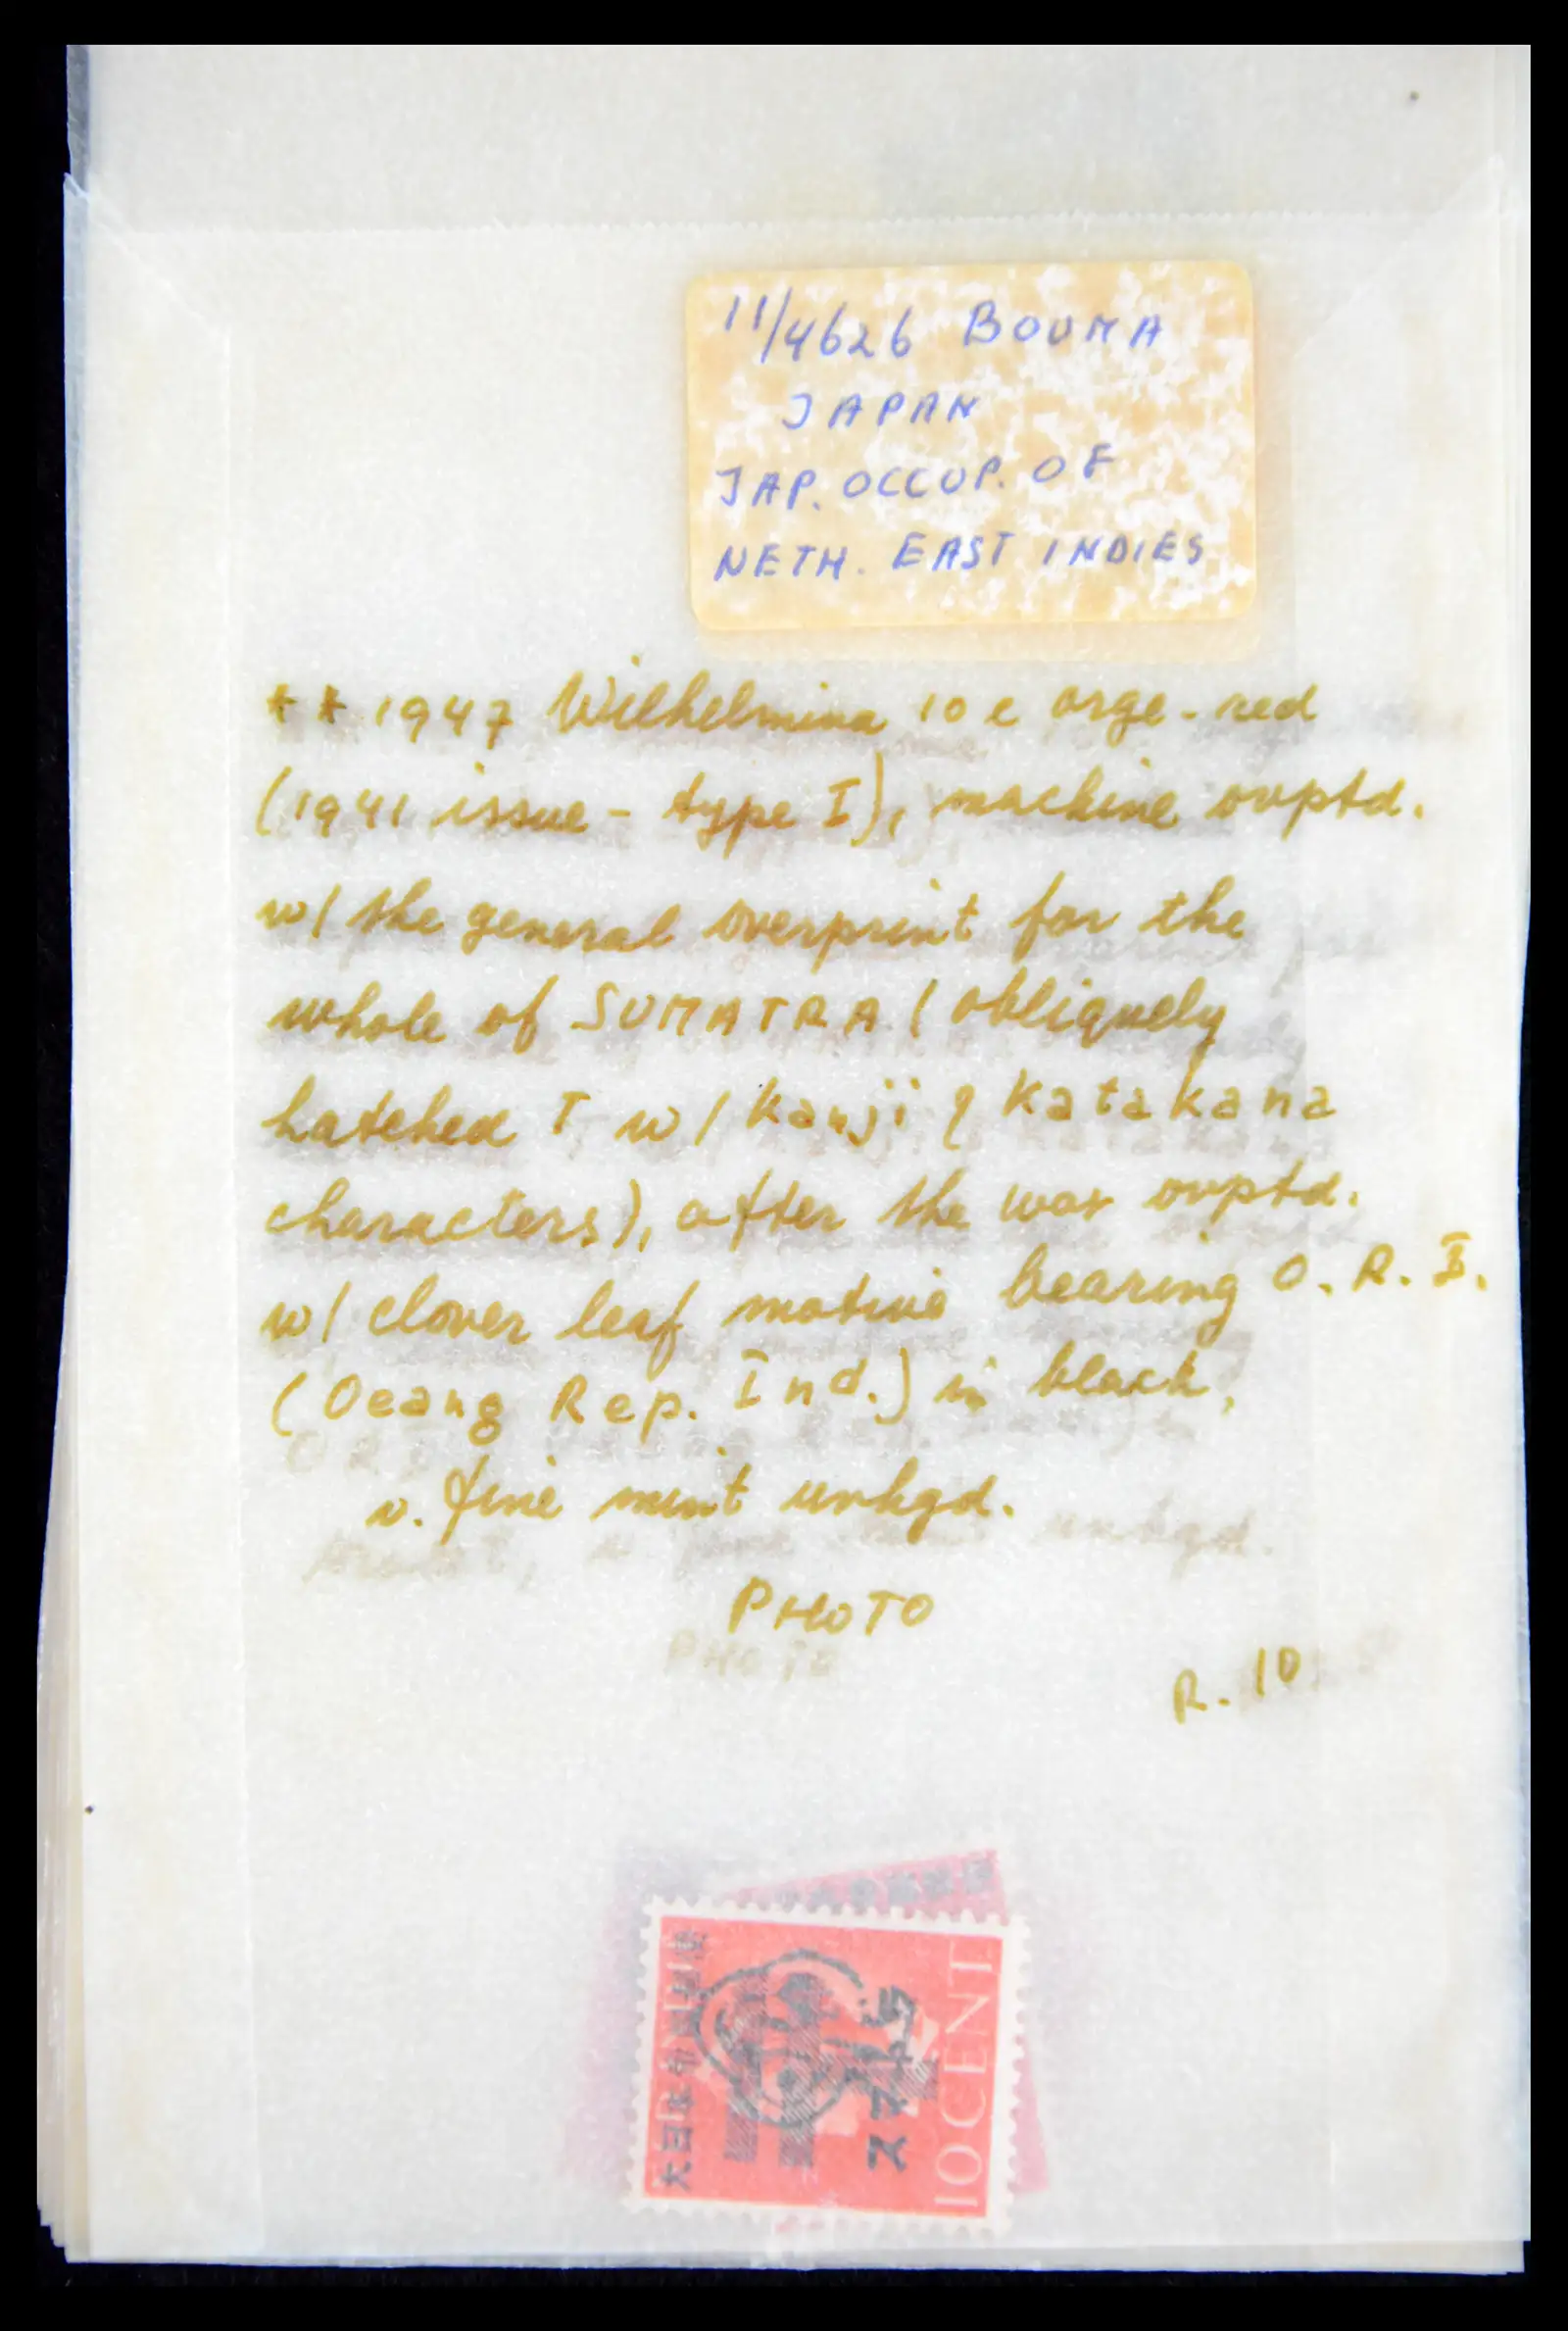 11/4626 BOUMA
JAPAN
JAP. OCCUP. OF
NETH. EAST INDIES
** 1947 Wilhelmina 10 c orge-red
(1941 issue - type I), machine ovptd.
w/ the general overprint for the
whole of SUMATRA (obliquely
hatched T w/ Kanji & Katakana
characters), after the war ovptd.
w/ clover leaf motive bearing O. R. I.
(Oeang Rep. Ind.) in black,
v. fine mint unhgd.
PHOTO
PHOTO
R. 10
大日本
スマトラ
10 CENT